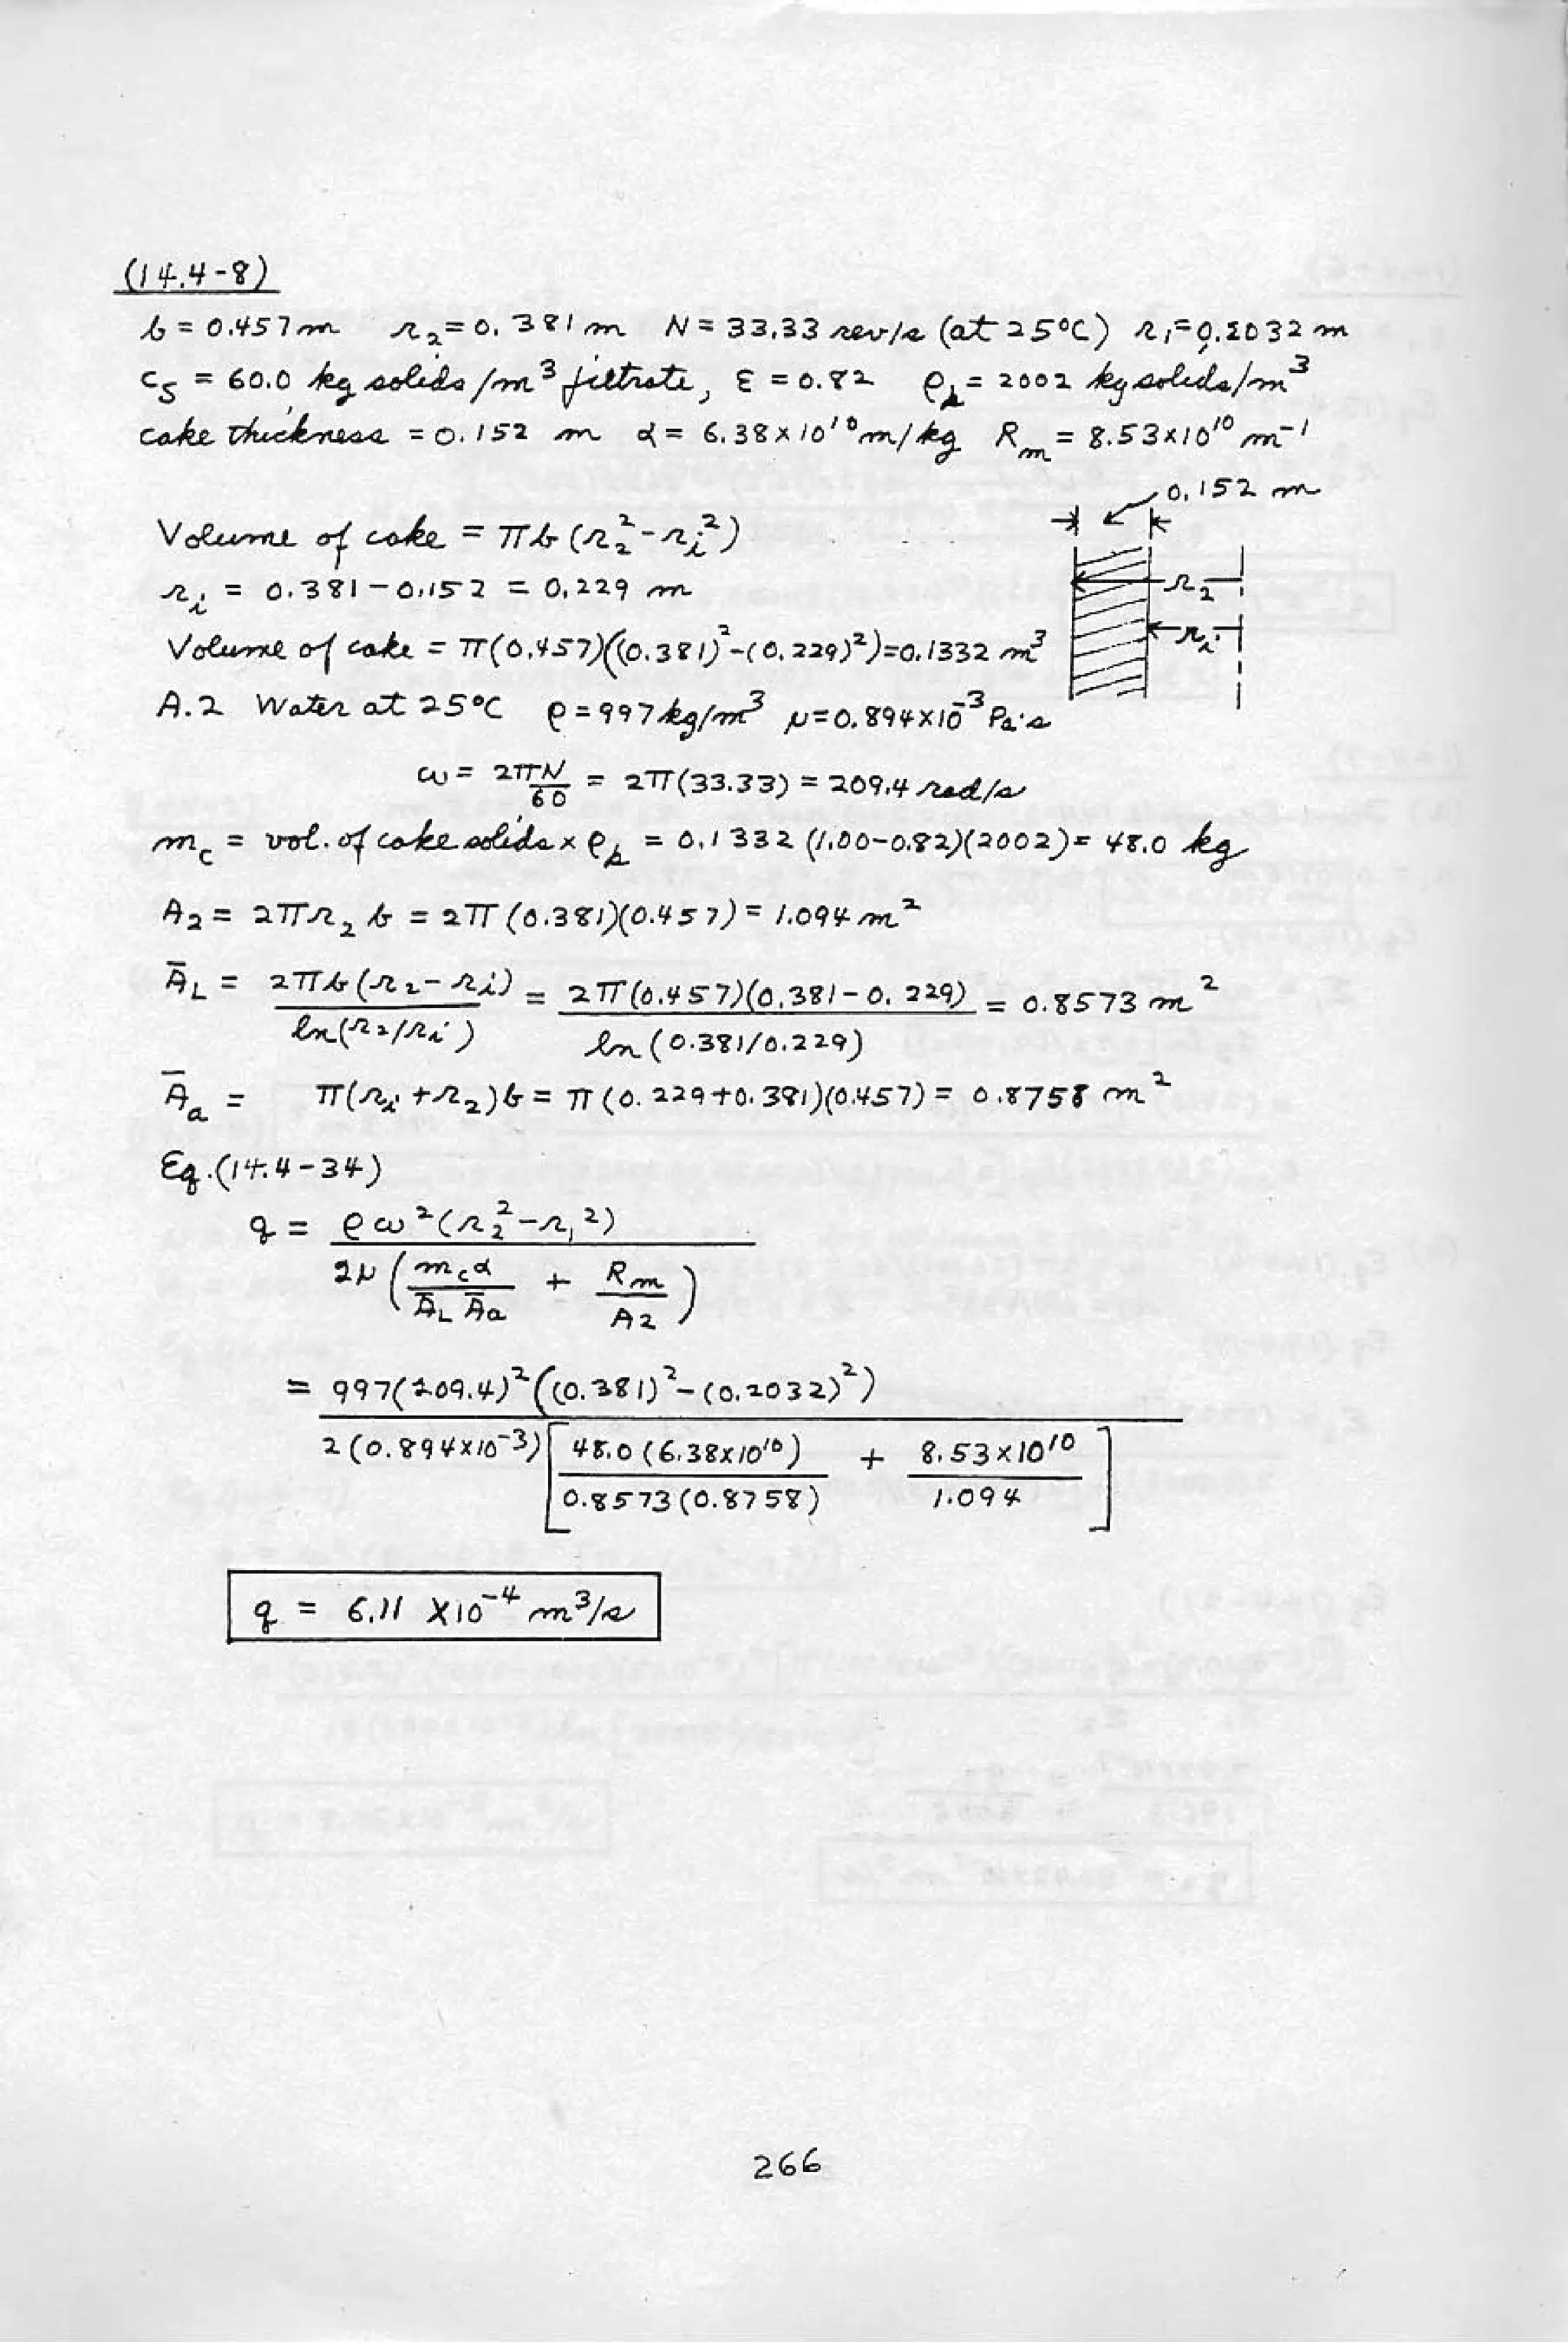 (14.4-8)
b = 0.457 m r₂ = 0.381 m N = 33.33 rev/s (at 25°C) r₁ = 0.2032 m
c_S = 60.0 kg solids/m³ filtrate, ε = 0.82 ρ_p = 2002 kg solids/m³
cake thickness = 0.152 m α = 6.38 x 10¹⁰ m/kg R_m = 8.53 x 10¹⁰ m⁻¹
0.152 m
Volume of cake = πb (r₂² - r_i²)
r_i = 0.381 - 0.152 = 0.229 m
r₂
Volume of cake = π(0.457)((0.381)² - (0.229)²) = 0.1332 m³
r_i
A.2 Water at 25°C ρ = 997 kg/m³ μ = 0.894 x 10⁻³ Pa·s
ω = 2πN/60 = 2π(33.33) = 209.4 rad/s
m_c = vol. of cake solids x ρ_p = 0.1332 (1.00-0.82)(2002) = 48.0 kg
A₂ = 2πr₂ b = 2π (0.381)(0.457) = 1.094 m²
Ā_L = 2πb(r₂ - r_i)/ln(r₂/r_i) = 2π(0.457)(0.381 - 0.229)/ln(0.381/0.229) = 0.8573 m²
Ā_a = π(r_i + r₂)b = π(0.229+0.381)(0.457) = 0.8758 m²
Eq. (14.4-34)
q = ρω²(r₂² - r₁²)
2μ (m_c α/Ā_L Ā_a + R_m/A₂)
= 997(209.4)²((0.381)² - (0.2032)²)
2(0.894x10⁻³)[48.0(6.38x10¹⁰)/0.8573(0.8758) + 8.53x10¹⁰/1.094]
q = 6.11 X10⁻⁴ m³/s
266